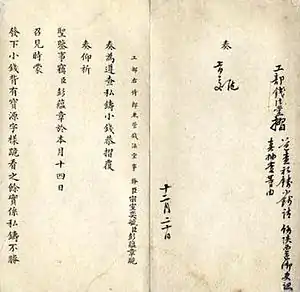 工部錢法堂摺
奏
十二月二十日
工部右侍郎兼管錢法堂事務臣宗室奕毓臣彭蘊章跪
奏為遵查私鑄小錢恭摺覆
奏仰祈
聖鑒事竊臣彭蘊章於本月十四日
召見時蒙
發下小錢背有寶源字樣跪看之餘實係私鑄不勝